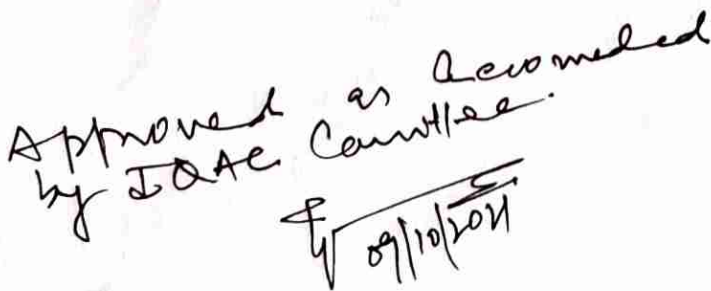 Approved as Recomended
by IQAC Committee.
09/10/2021